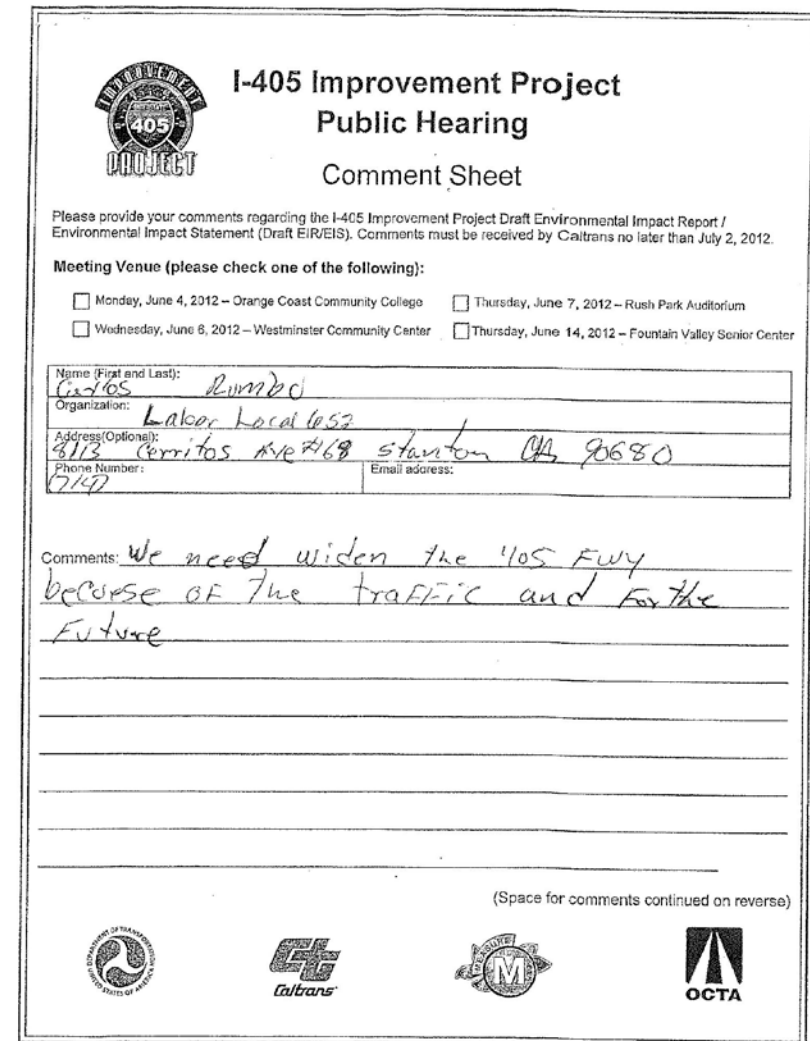 IMPROVEMENT
405
PROJECT
I-405 Improvement Project
Public Hearing
Comment Sheet
Please provide your comments regarding the I-405 Improvement Project Draft Environmental Impact Report /
Environmental Impact Statement (Draft EIR/EIS). Comments must be received by Caltrans no later than July 2, 2012.
Meeting Venue (please check one of the following):
Monday, June 4, 2012 – Orange Coast Community College
Thursday, June 7, 2012 – Rush Park Auditorium
Wednesday, June 6, 2012 – Westminster Community Center
Thursday, June 14, 2012 – Fountain Valley Senior Center
Name (First and Last):
Rumbo
Organization:
Labor Local 652
Address(Optional):
8113 Cerritos Ave #168 Stanton CA 90680
Phone Number:
Email address:
(714)
Comments: We need widen the 405 FWY
becuese of The traffic and For the
Future
(Space for comments continued on reverse)
DEPARTMENT OF TRANSPORTATION
UNITED STATES OF AMERICA
Caltrans
MEASURE
M
OCTA